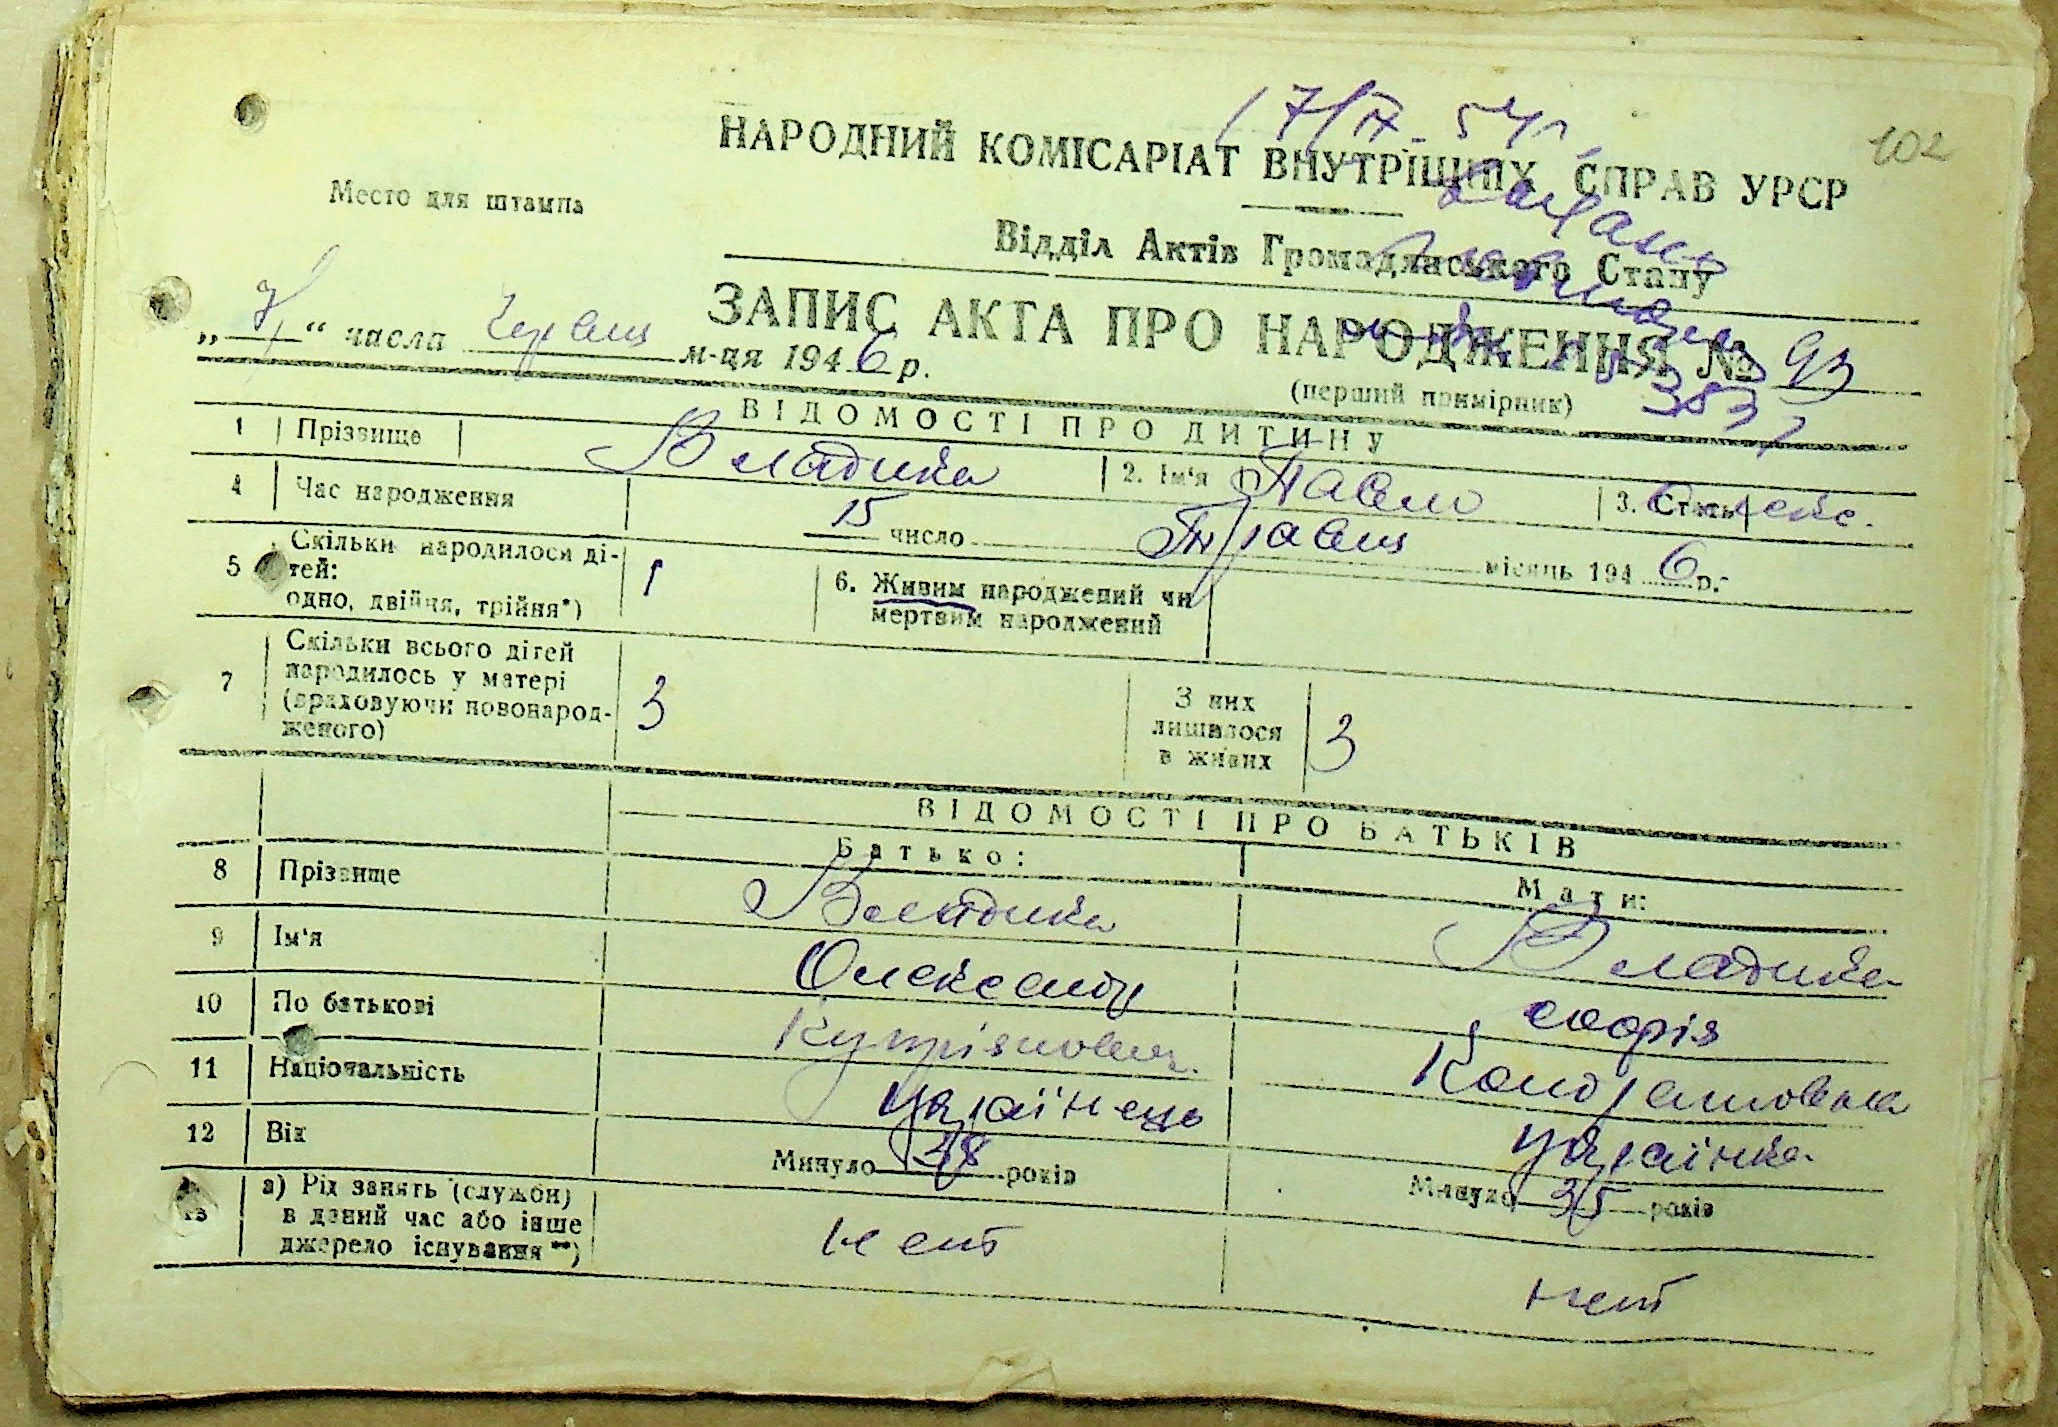 17/IX-54 г.
102
НАРОДНИЙ КОМІСАРІАТ ВНУТРІШНІХ СПРАВ УРСР
Место для штампа
Відділ Актів Громадянського Стану
ЗАПИС АКТА ПРО НАРОДЖЕННЯ № 93
„7“ числа Червня м-ця 1946 р.
(перший примірник)
ВІДОМОСТІ ПРО ДИТИНУ
1 Прізвище Владика 2. Ім'я Павло 3. Стать
4 Час народження 15 число Травня місяць 1946 р.
5 Скільки народилося ді-
тей:
одно, двійня, трійня*) 1
6. Живим народжений чи
мертвим народжений
7 Скільки всього дітей
народилось у матері
(враховуючи новонарод-
женого) 3
З них
лишилося
в живих 3
ВІДОМОСТІ ПРО БАТЬКІВ
Батько: Мати:
8 Прізвище Владика Владика
9 Ім'я Олександр Софія
10 По батькові Купріянович Кондратовна
11 Національність Українець Українка
12 Вік Минуло 38 років Минуло 35 років
13 а) Рід занять (служби)
в даний час або інше
джерело існування **) нет нет